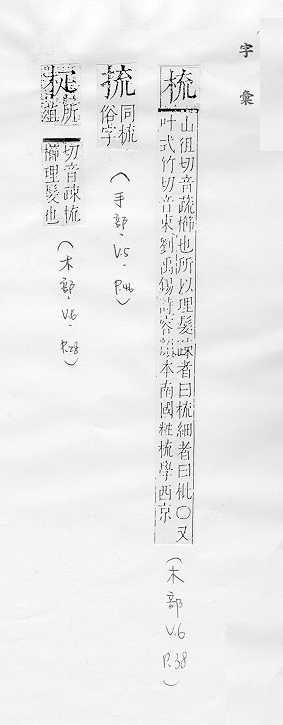 字彙
梳
山徂切音蔬櫛也所以理髮疎者曰梳細者曰枇○又
叶式竹切音束劉禹錫詩容本南國粧梳學西京
(木部 V.6 P.38)
同梳
俗字
(手部 V.5 P.46)
所
葅
切音疎梳
櫛理髮也
(木部 V.6 P.28)